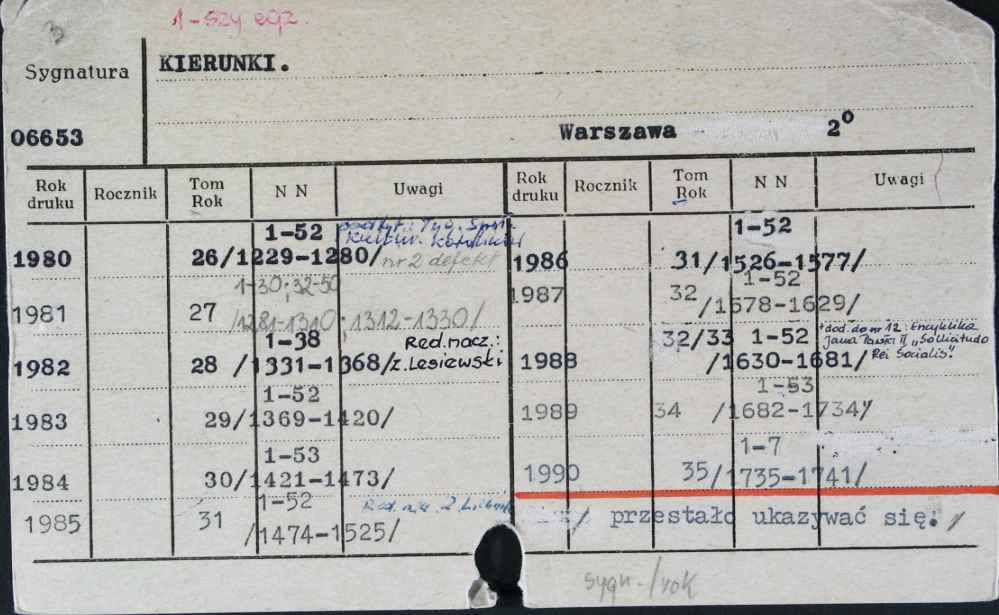 3
1-szy egz.
Sygnatura
KIERUNKI.
06653
Warszawa 2°
Rok druku Rocznik Tom Rok N N Uwagi
1980 26 1-52 /1229-1280/ podtyt.: Tyg. Społ. Kultur. nr 2 defekt
1981 27 1-30; 32-50 /1281-1310; 1312-1330/
1982 28 1-38 /1331-1368/ Red. nacz.: Z. Lesiewski
1983 29 1-52 /1369-1420/
1984 30 1-53 /1421-1473/
1985 31 1-52 /1474-1525/ Red.
Rok druku Rocznik Tom Rok N N Uwagi
1986 31 1-52 /1526-1577/
1987 32 1-52 /1578-1629/
1988 32/33 1-52 /1630-1681/ + dod. do nr 12: Encyklika Jana Pawła II „Sollicitudo Rei Socialis".
1989 34 1-53 /1682-1734/
1990 35 1-7 /1735-1741/
/ przestało ukazywać się. /
sygn. /rok